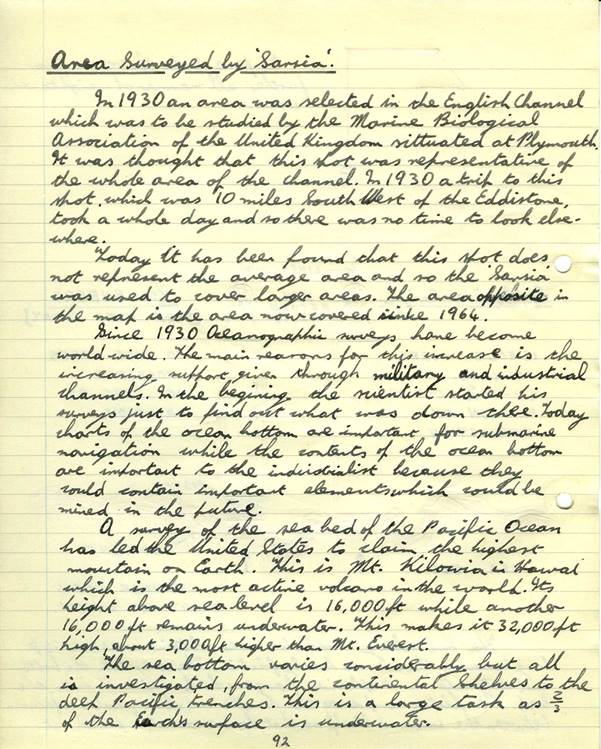 Area Surveyed by 'Sarsia'.
In 1930 an area was selected in the English Channel
which was to be studied by the Marine Biological
Association of the United Kingdom sittuated at Plymouth.
It was thought that this spot was representative of
the whole area of the channel. In 1930 a trip to this
spot, which was 10 miles South West of the Eddistone,
took a whole day and so there was no time to look else-
where.
Today It has been found that this spot does
not represent the average area and so the 'Sarsia'
was used to cover larger areas. The area opposite in
the map is the area now covered since 1964.
Since 1930 Oceanographic surveys have become
world wide. The main reasons for this increase is the
increasing support given through military and industrial
channels. In the begining the scientist started his
surveys just to find out what was down there. Today
charts of the ocean bottom are important for submarine
navigation while the contents of the ocean bottom
are important to the industrialist because they
could contain important elements which could be
mined in the future.
A survey of the sea bed of the Pacific Ocean
has led the United States to claim, the highest
mountain on Earth. This is Mt. Kilowia in Hawai
which is the most active volcano in the world. Its
height above sea level is 16,000ft while another
16,000ft remains underwater. This makes it 32,000ft
high, about 3,000ft higher than Mt. Everest.
The sea bottom varies considerably but all
is investigated, from the continental shelves to the
deep Pacific trenches. This is a large task as 2/3
of the Earth's surface is underwater.
92